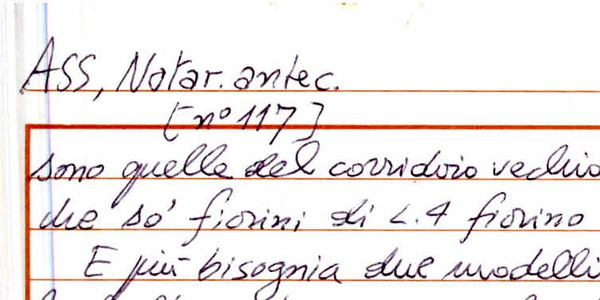 ASS, Notar. antec.
[n° 117]
sono quelle del corridoio vechio
che so' fiorini di L. 4 fiorino
E più bisognia due modelli